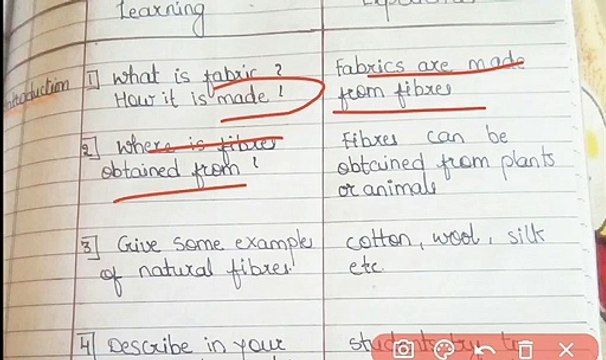 Learning
Introduction
1] What is fabric ?
How it is made !
Fabrics are made
from fibres
2] Where is fibres
obtained from !
Fibres can be
obtained from plants
or animals
3] Give some example
of natural fibres.
cotton, wool, silk
etc.
4] Describe in your